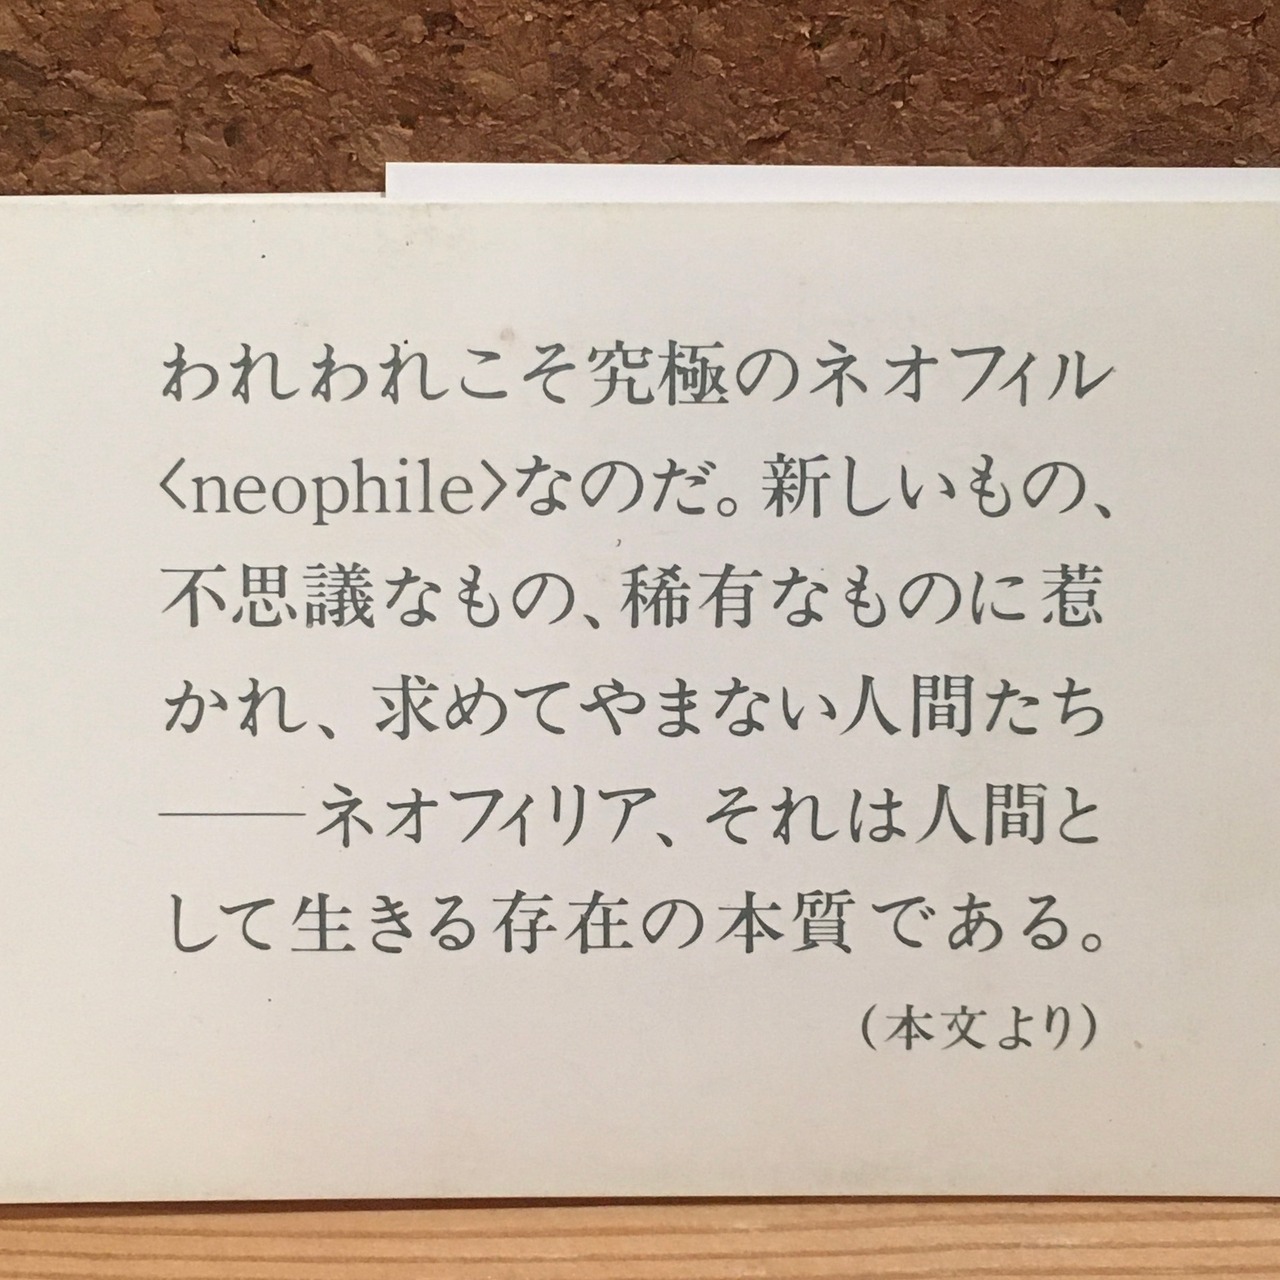 われわれこそ究極のネオフィル
〈neophile〉なのだ。新しいもの、
不思議なもの、稀有なものに惹
かれ、求めてやまない人間たち
——ネオフィリア、それは人間と
して生きる存在の本質である。
（本文より）